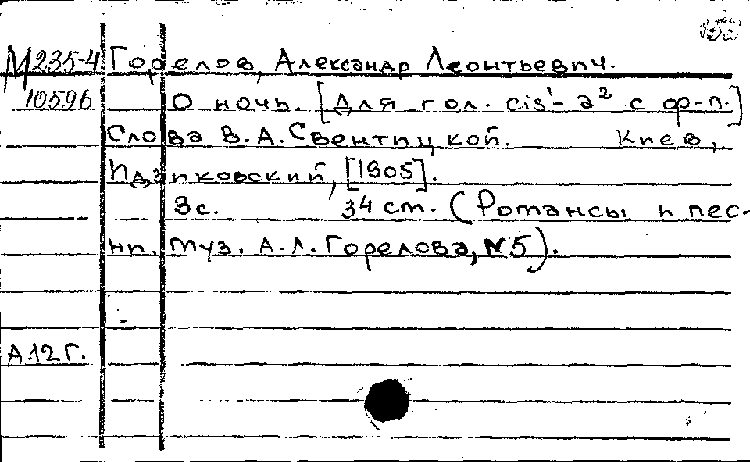 М 235-4 Горелов, Александр Леонтьевич.
10596 О ночь. [Для гол. cis¹-a² с ф-п.]
Слова В.А. Свентицкой. Киев,
Идзиковский, [1905].
3с. 34 см. (Романсы и пес-
ни. муз. А.Л. Горелова, №5).
А12г.